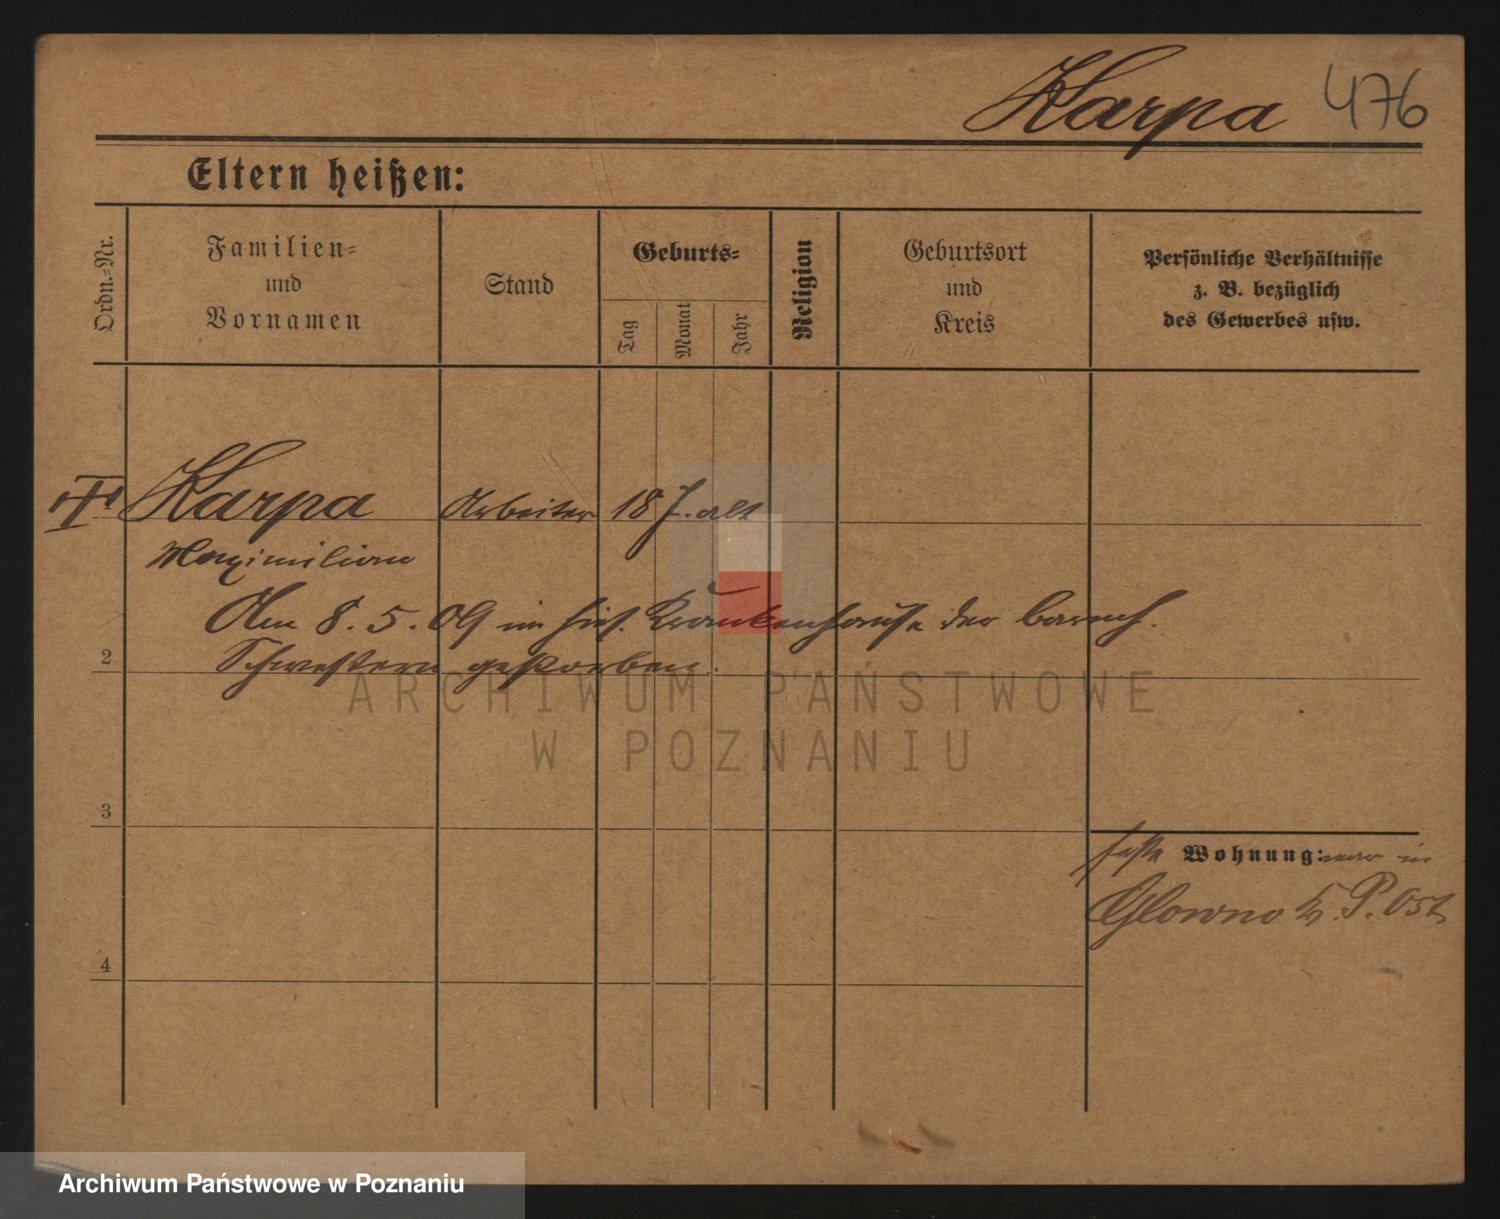 Karpa 476
Eltern heißen:
Ordn.-Nr.
Familien-
und
Vornamen
Stand
Geburts-
Tag
Monat
Jahr
Religion
Geburtsort
und
Kreis
Persönliche Verhältnisse
z. B. bezüglich
des Gewerbes usw.
Karpa Arbeiter 18 J. alt
Maximilian
Am 8. 5. 09 im hies. Krankenhause der barmh.
2 Schwestern gestorben.
ARCHIWUM PAŃSTWOWE
W POZNANIU
3
feste Wohnung: war in
Glowno K. P. Ost
4
Archiwum Państwowe w Poznaniu